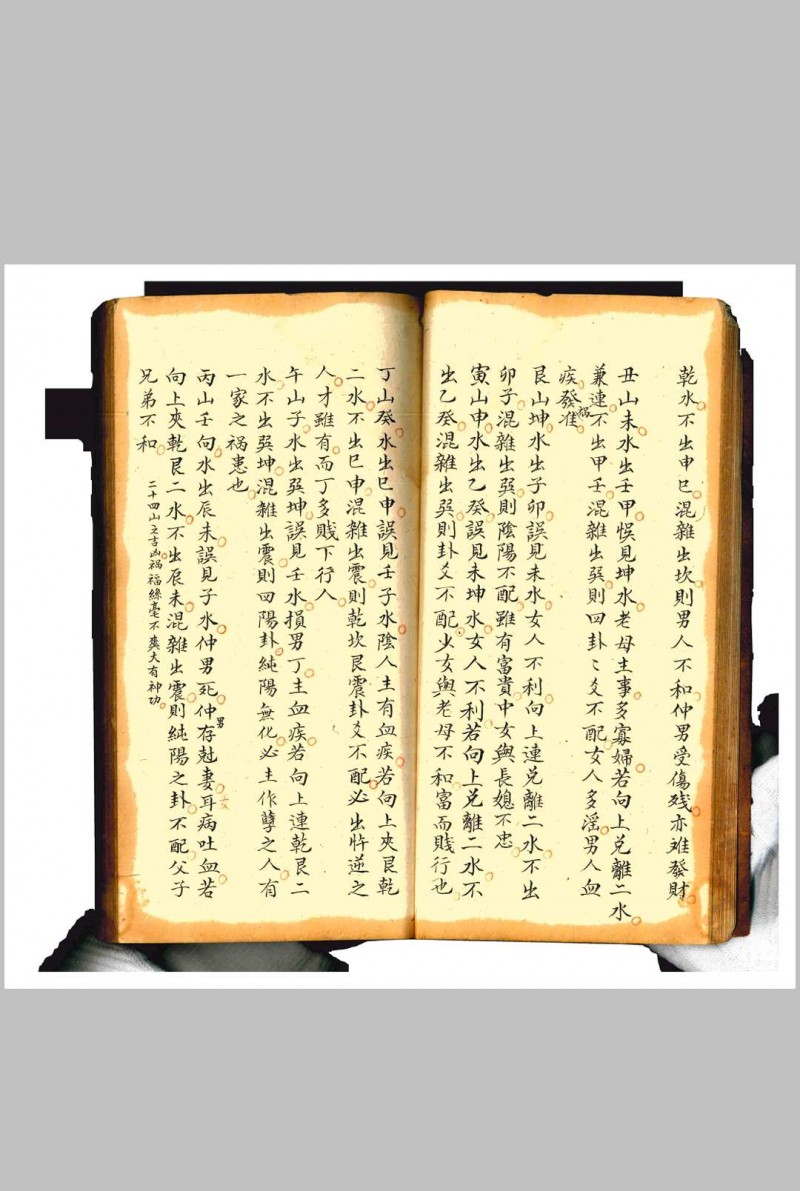 乾水不出申巳混雜出坎則男人不和仲男受傷殘亦難發財
丑山未水出壬甲悞見坤水老母主事多寡婦若向上兌離二水
兼連不出甲壬混雜出巽則四卦〻爻不配女人多淫男人血
疾發禍准
艮山坤水出子卯誤見未水女人不利向上連兌離二水不出
卯子混雜出巽則陰陽不配雖有富貴中女與長媳不忠
寅山申水出乙癸誤見未坤水女人不利若向上兌離二水不
出乙癸混雜出巽則卦爻不配少女與老母不和富而賤行也
丁山癸水出巳申誤見壬子水陰人主有血疾若向上夾艮乾
二水不出巳申混雜出震則乾坎艮震卦爻不配必出忤逆之
人才雖有而丁多賤下行人
午山子水出巽坤誤見壬水損男丁主血疾若向上連乾艮二
水不出巽坤混雜出震則四陽卦純陽無化必主作孽之人有
一家之禍患也
丙山壬向水出辰未誤見子水仲男死仲男存尅妻耳病吐血若
女
向上夾乾艮二水不出辰未混雜出震則純陽之卦不配父子
兄弟不和
二十四山之吉凶禍福絲毫不爽大有神功